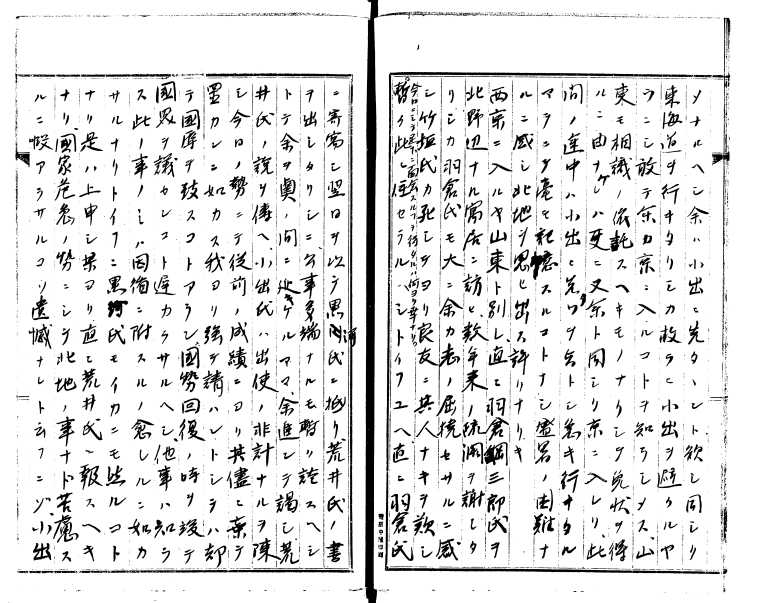 メナルヘシ余ハ小出ニ先タ、ント欲シ同シリ
東海道ヲ行キタリシカ故ラニ小出ヲ避クルヤ
ランニ敢テ余カ京ニ入ルコトヲ知ラシメス山
東モ相識ノ依託スヘキモノナクシテ免状ヲ得
ルニ由ナケレハ更ニ又余ト同シク京ニ入レリ此
間ノ連中ハ小出ト先ヲ争トシ急キ行キタル
マテニテ毫モ記憶スルコトナシ蛮名ノ困難ナ
ルニ感シ此地ヲ思ヒ出ス許リナリキ
西京ニ入ルヤ山東ト別レ直ニ羽倉鋼三郎氏ヲ
北野辺ナル寓居ニ訪ヒ数年来ノ疏濶ヲ謝シタ
リシカ羽倉氏モ大ニ余カ志ノ屈撓セサルニ感
シ竹垣氏カ死シテヨリ良友ニ其人ナキヲ歎シ
暫ク此ニ住セラルヘシトイフユヘ直ニ羽倉氏
ニ寄寓シ翌日ヲ以テ黒河氏ニ抵リ荒井氏ノ書
ヲ出シタリシニ公事多端ナルモ暫ク談スヘシ
トテ余ヲ奥ノ間ニ延キケルママ余進ンテ謁シ荒
井氏ノ説ヲ傳ヘ小出氏ハ出使ノ非計ナルヲ陳
シ今日ノ勢ニテ従前ノ成績ニヨリ其儘ニ棄テ
置カンニ如カス我ヨリ強テ請ハントシラハ却
テ國辱ヲ招スコトアラン國勢回復ノ時ヲ竢テ
國界ヲ議センコト遅カラサルヘシ他事ハ知ラ
ス此ノ事ノミハ因循ニ附スルノ愈レルニ如カ
サルナリトイフニ黒河氏モイカニモ然ルコト
ナリ是ハ上申シ果ヨリ直ニ荒井氏ヘ報スヘキ
ナリ國家危急ノ勢ニシテ北地ノ事ナト苦慮ス
ルニ暇アラサルコソ遺憾ナレト云フニソ小出